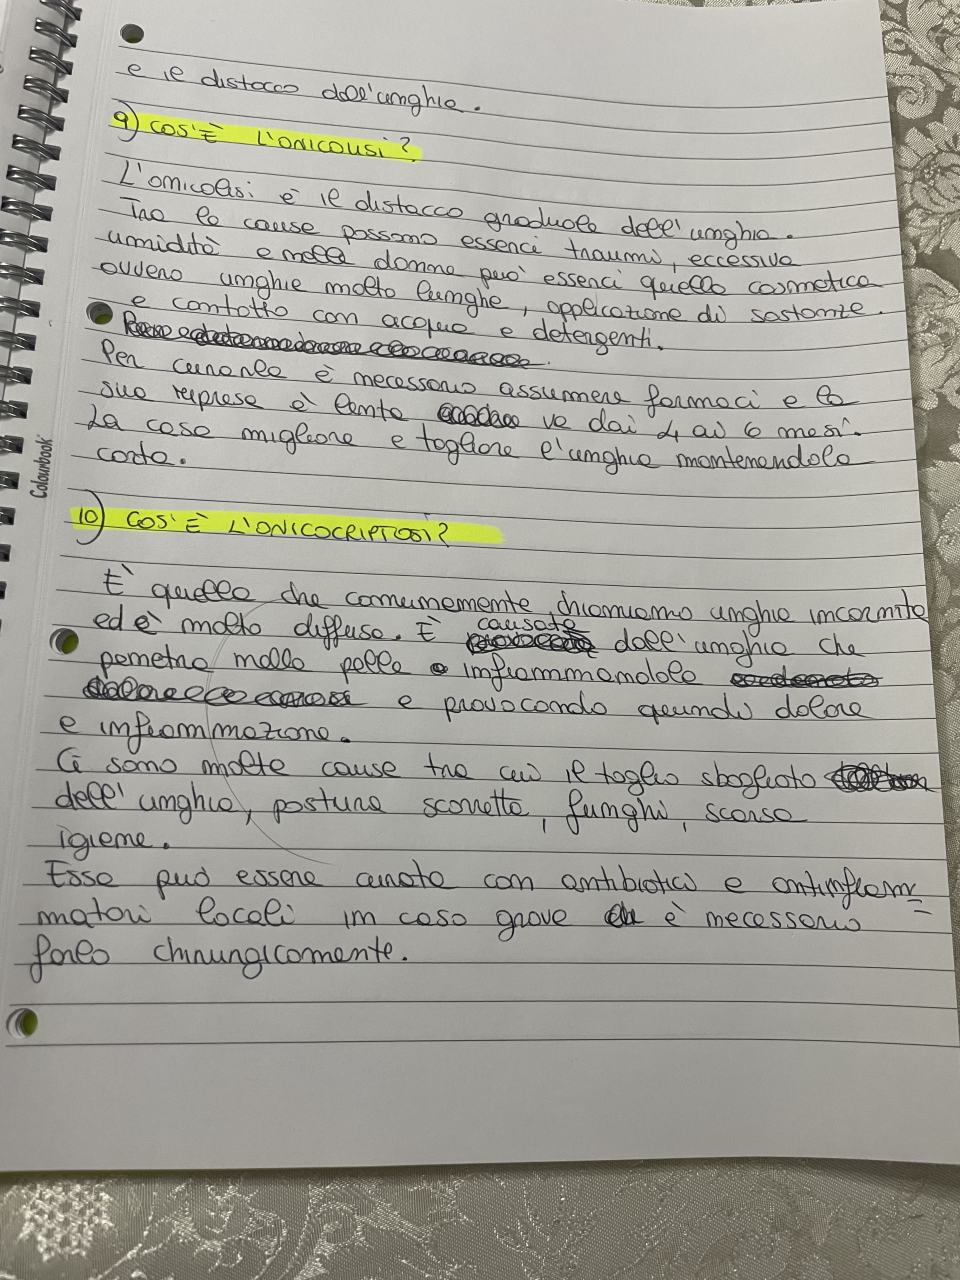 e il distacco dell'unghia.
9) COS'È L'ONICOLISI?
L'onicolisi è il distacco graduale dell'unghia.
Tra le cause possono esserci traumi, eccessiva
umidità e nelle donne può esserci quella cosmetica
ovvero unghie molto lunghe, applicazione di sostanze
e contatto con acqua e detergenti.
Per curarla è necessario assumere farmaci e la
sua ripresa è lenta va dai 4 ai 6 mesi.
La cosa migliore e togliere l'unghia mantenendola
corta.
10) COS'È L'ONICOCRIPTOSI?
È quella che comunemente chiamiamo unghia incarnita
ed è molto diffusa. È causata dall'unghia che
penetra nella pelle infiammandola
e provocando quindi dolore
e infiammazione.
Ci sono molte cause tra cui il taglio sbagliato
dell'unghia, postura scorretta, funghi, scarsa
igiene.
Essa può essere curata con antibiotici e antinfiam=
matori locali in caso grave è necessario
farlo chirurgicamente.
Colourbook